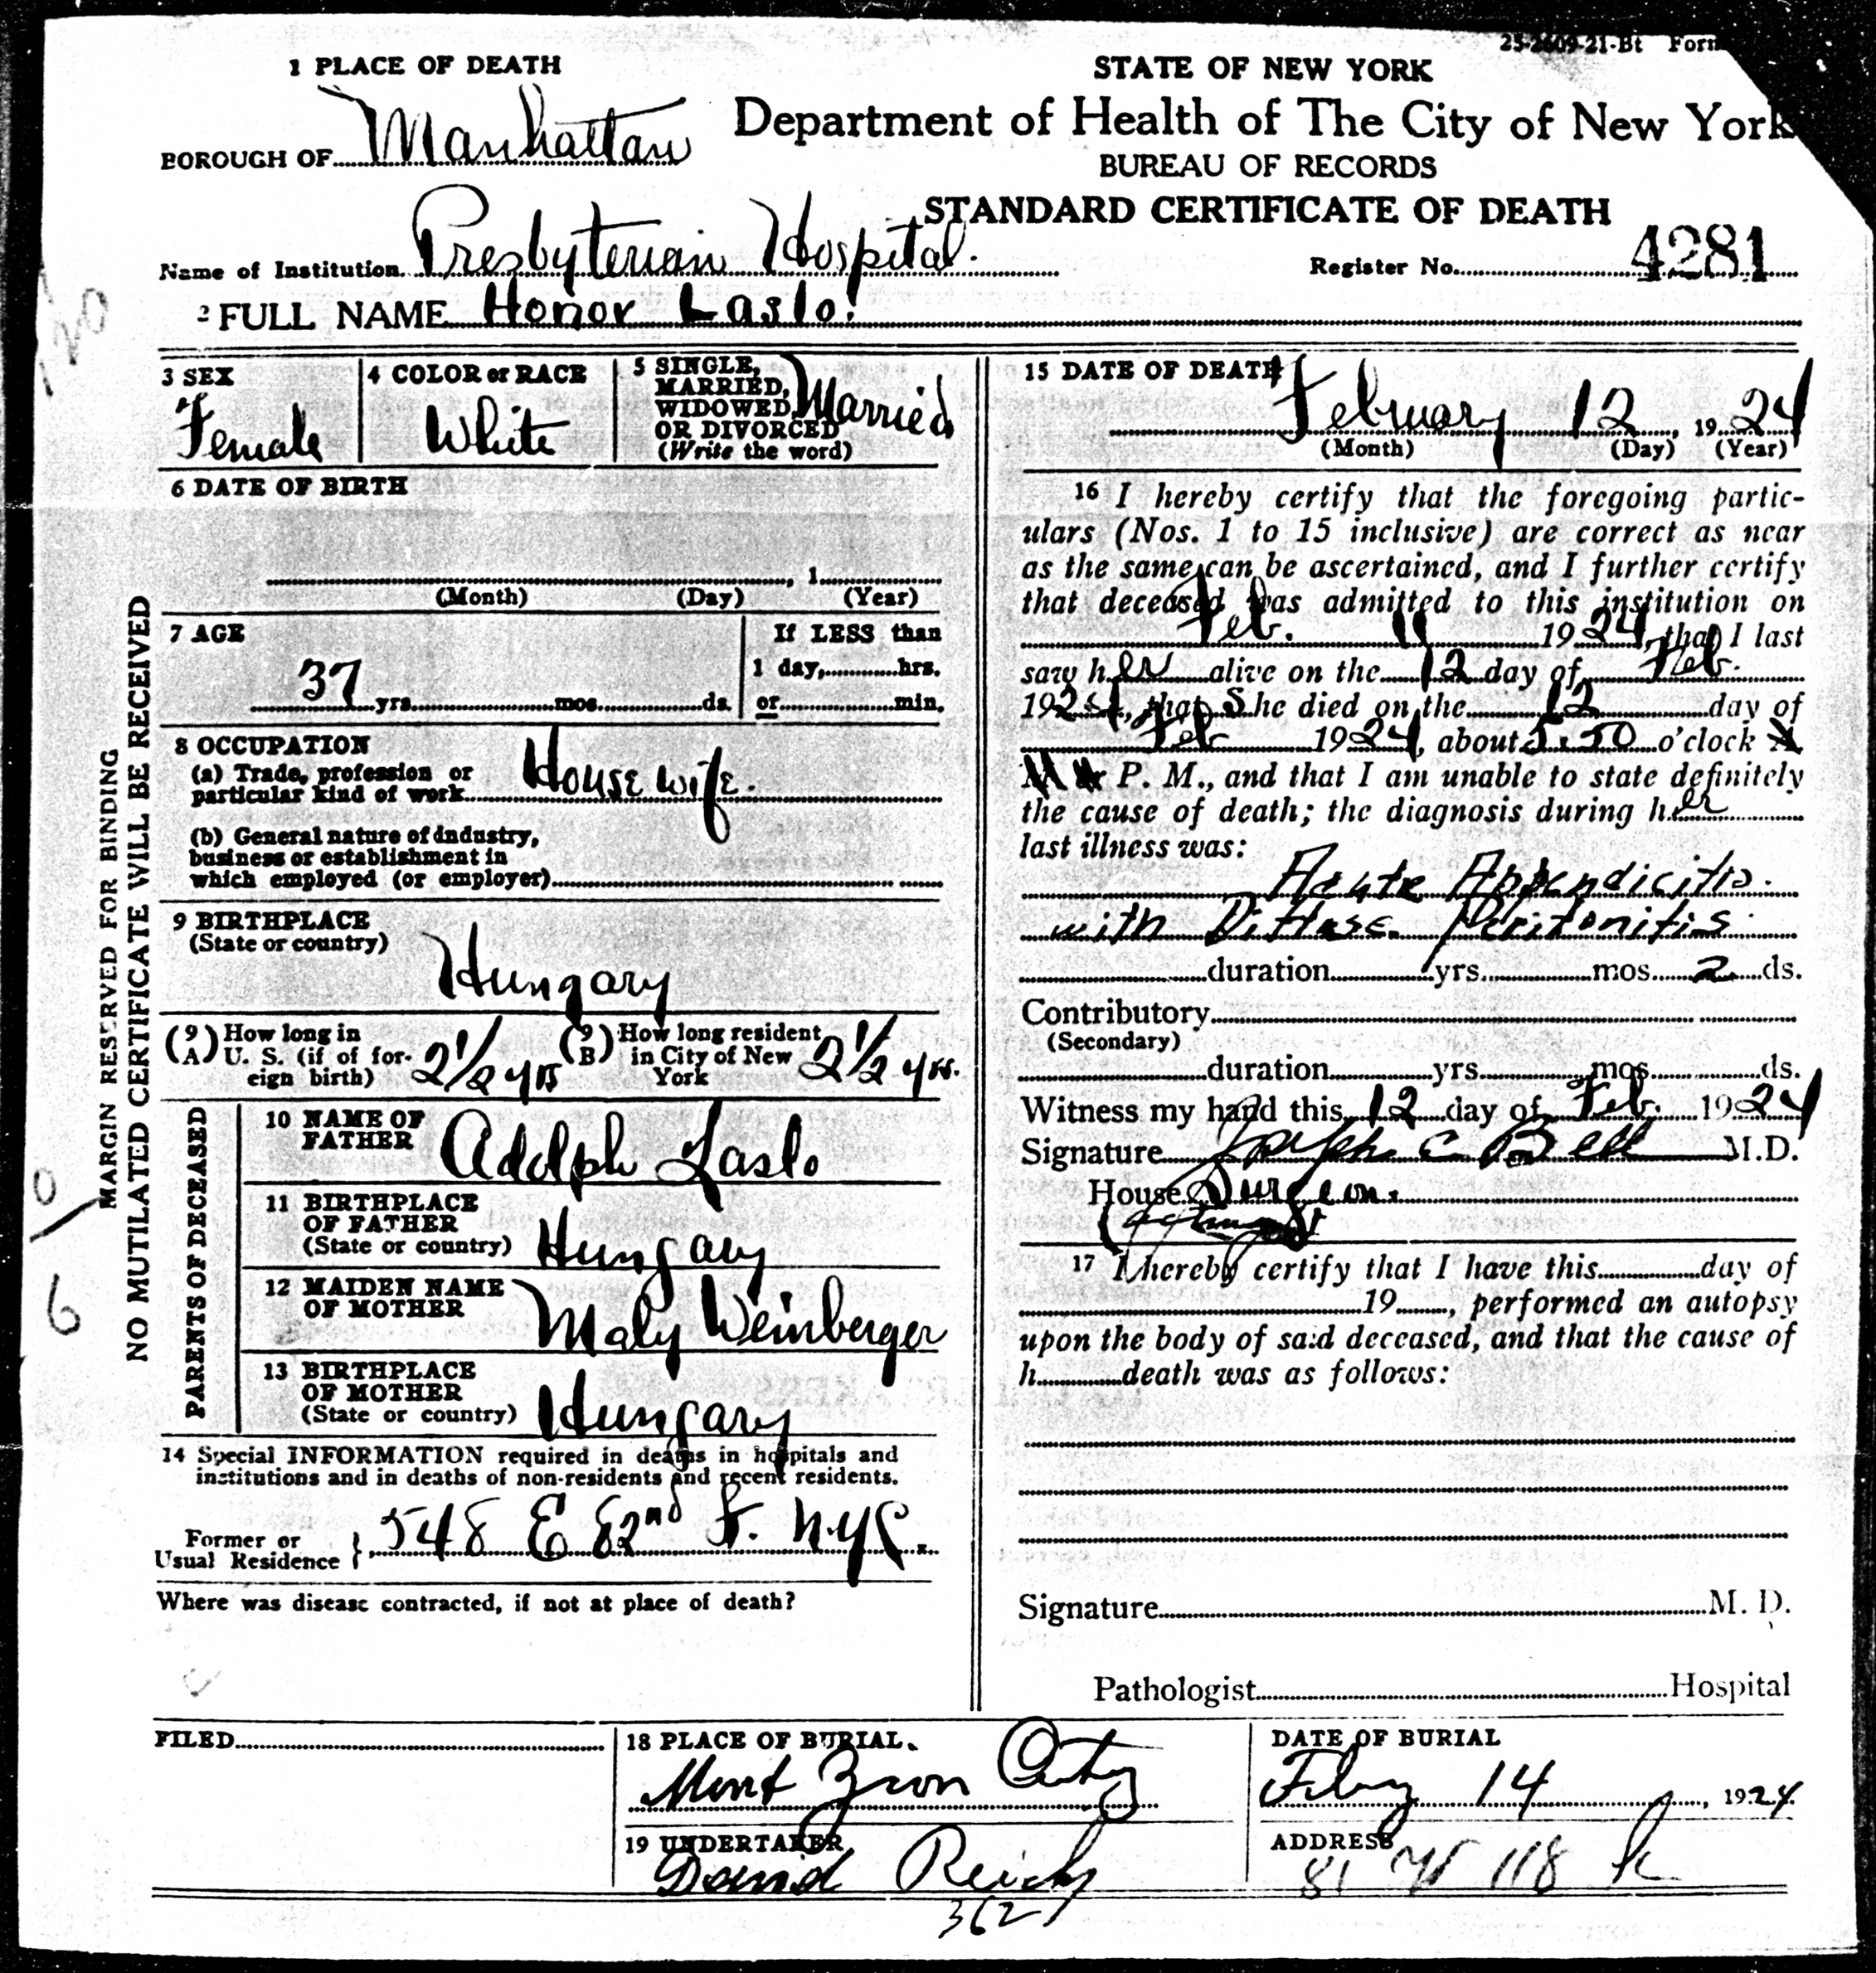 25-2609-21-Bt Form
1 PLACE OF DEATH
STATE OF NEW YORK
Department of Health of The City of New York
BUREAU OF RECORDS
STANDARD CERTIFICATE OF DEATH
BOROUGH OF Manhattan
Name of Institution Presbyterian Hospital.
Register No. 4281
2 FULL NAME Honor Laslo.
MARGIN RESERVED FOR BINDING
NO MUTILATED CERTIFICATE WILL BE RECEIVED
120
0
6
3 SEX
Female
4 COLOR or RACE
White
5 SINGLE,
MARRIED,
WIDOWED,
OR DIVORCED
(Write the word)
Married
6 DATE OF BIRTH
, 1
(Month) (Day) (Year)
7 AGE
37 yrs. mos. ds.
If LESS than
1 day, hrs.
or min.
8 OCCUPATION
(a) Trade, profession or
particular kind of work House wife.
(b) General nature of dndustry,
business or establishment in
which employed (or employer)
9 BIRTHPLACE
(State or country)
Hungary
(9 A) How long in
U. S. (if of for-
eign birth) 2 1/2 yrs
(9 B) How long resident
in City of New
York 2 1/2 yrs.
PARENTS OF DECEASED
10 NAME OF
FATHER Adolph Laslo
11 BIRTHPLACE
OF FATHER
(State or country) Hungary
12 MAIDEN NAME
OF MOTHER Maly Weinberger
13 BIRTHPLACE
OF MOTHER
(State or country) Hungary
14 Special INFORMATION required in deaths in hospitals and
institutions and in deaths of non-residents and recent residents.
Former or
Usual Residence } 548 E 82nd St. N.Y.C.
Where was disease contracted, if not at place of death?
15 DATE OF DEATH
February 12, 1924
(Month) (Day) (Year)
16 I hereby certify that the foregoing partic-
ulars (Nos. 1 to 15 inclusive) are correct as near
as the same can be ascertained, and I further certify
that deceased was admitted to this institution on
Feb. 11 1924, that I last
saw her alive on the 12 day of Feb.
1924, that She died on the 12 day of
Feb 1924, about 5:50 o'clock A
M or P. M., and that I am unable to state definitely
the cause of death; the diagnosis during her
last illness was:
Acute Appendicitis.
with Diffuse Peritonitis.
duration yrs. mos. 2 ds.
Contributory
(Secondary)
duration yrs. mos. ds.
Witness my hand this 12 day of Feb. 1924
Signature Joseph C Bell M.D.
House Surgeon.
(acting)
17 I hereby certify that I have this day of
19 , performed an autopsy
upon the body of said deceased, and that the cause of
h death was as follows:
Signature M. D.
Pathologist Hospital
FILED
18 PLACE OF BURIAL.
Mont Zion Cmty
DATE OF BURIAL
Feby 14, 1924
19 UNDERTAKER
David Reich
3627
ADDRESS
81 W 118 St